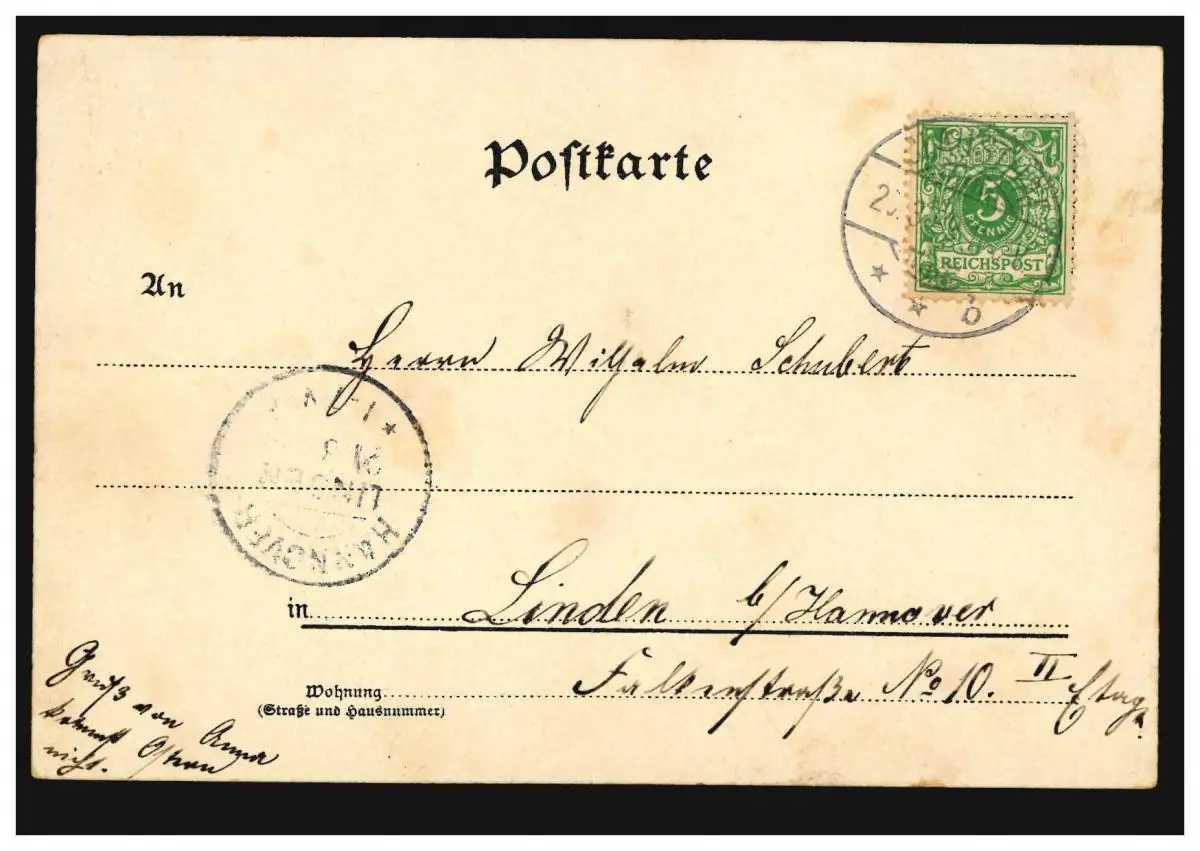 Postkarte
5
PFENNIG
REICHSPOST
b
An
Herrn Wilhelm Schubert
LINDEN
HANNOVER
in Linden b/Hannover
Wohnung Falkenstraße No 10. II Etage
(Straße und Hausnummer)
Gruß von Anna
kommt Ostern
nicht.